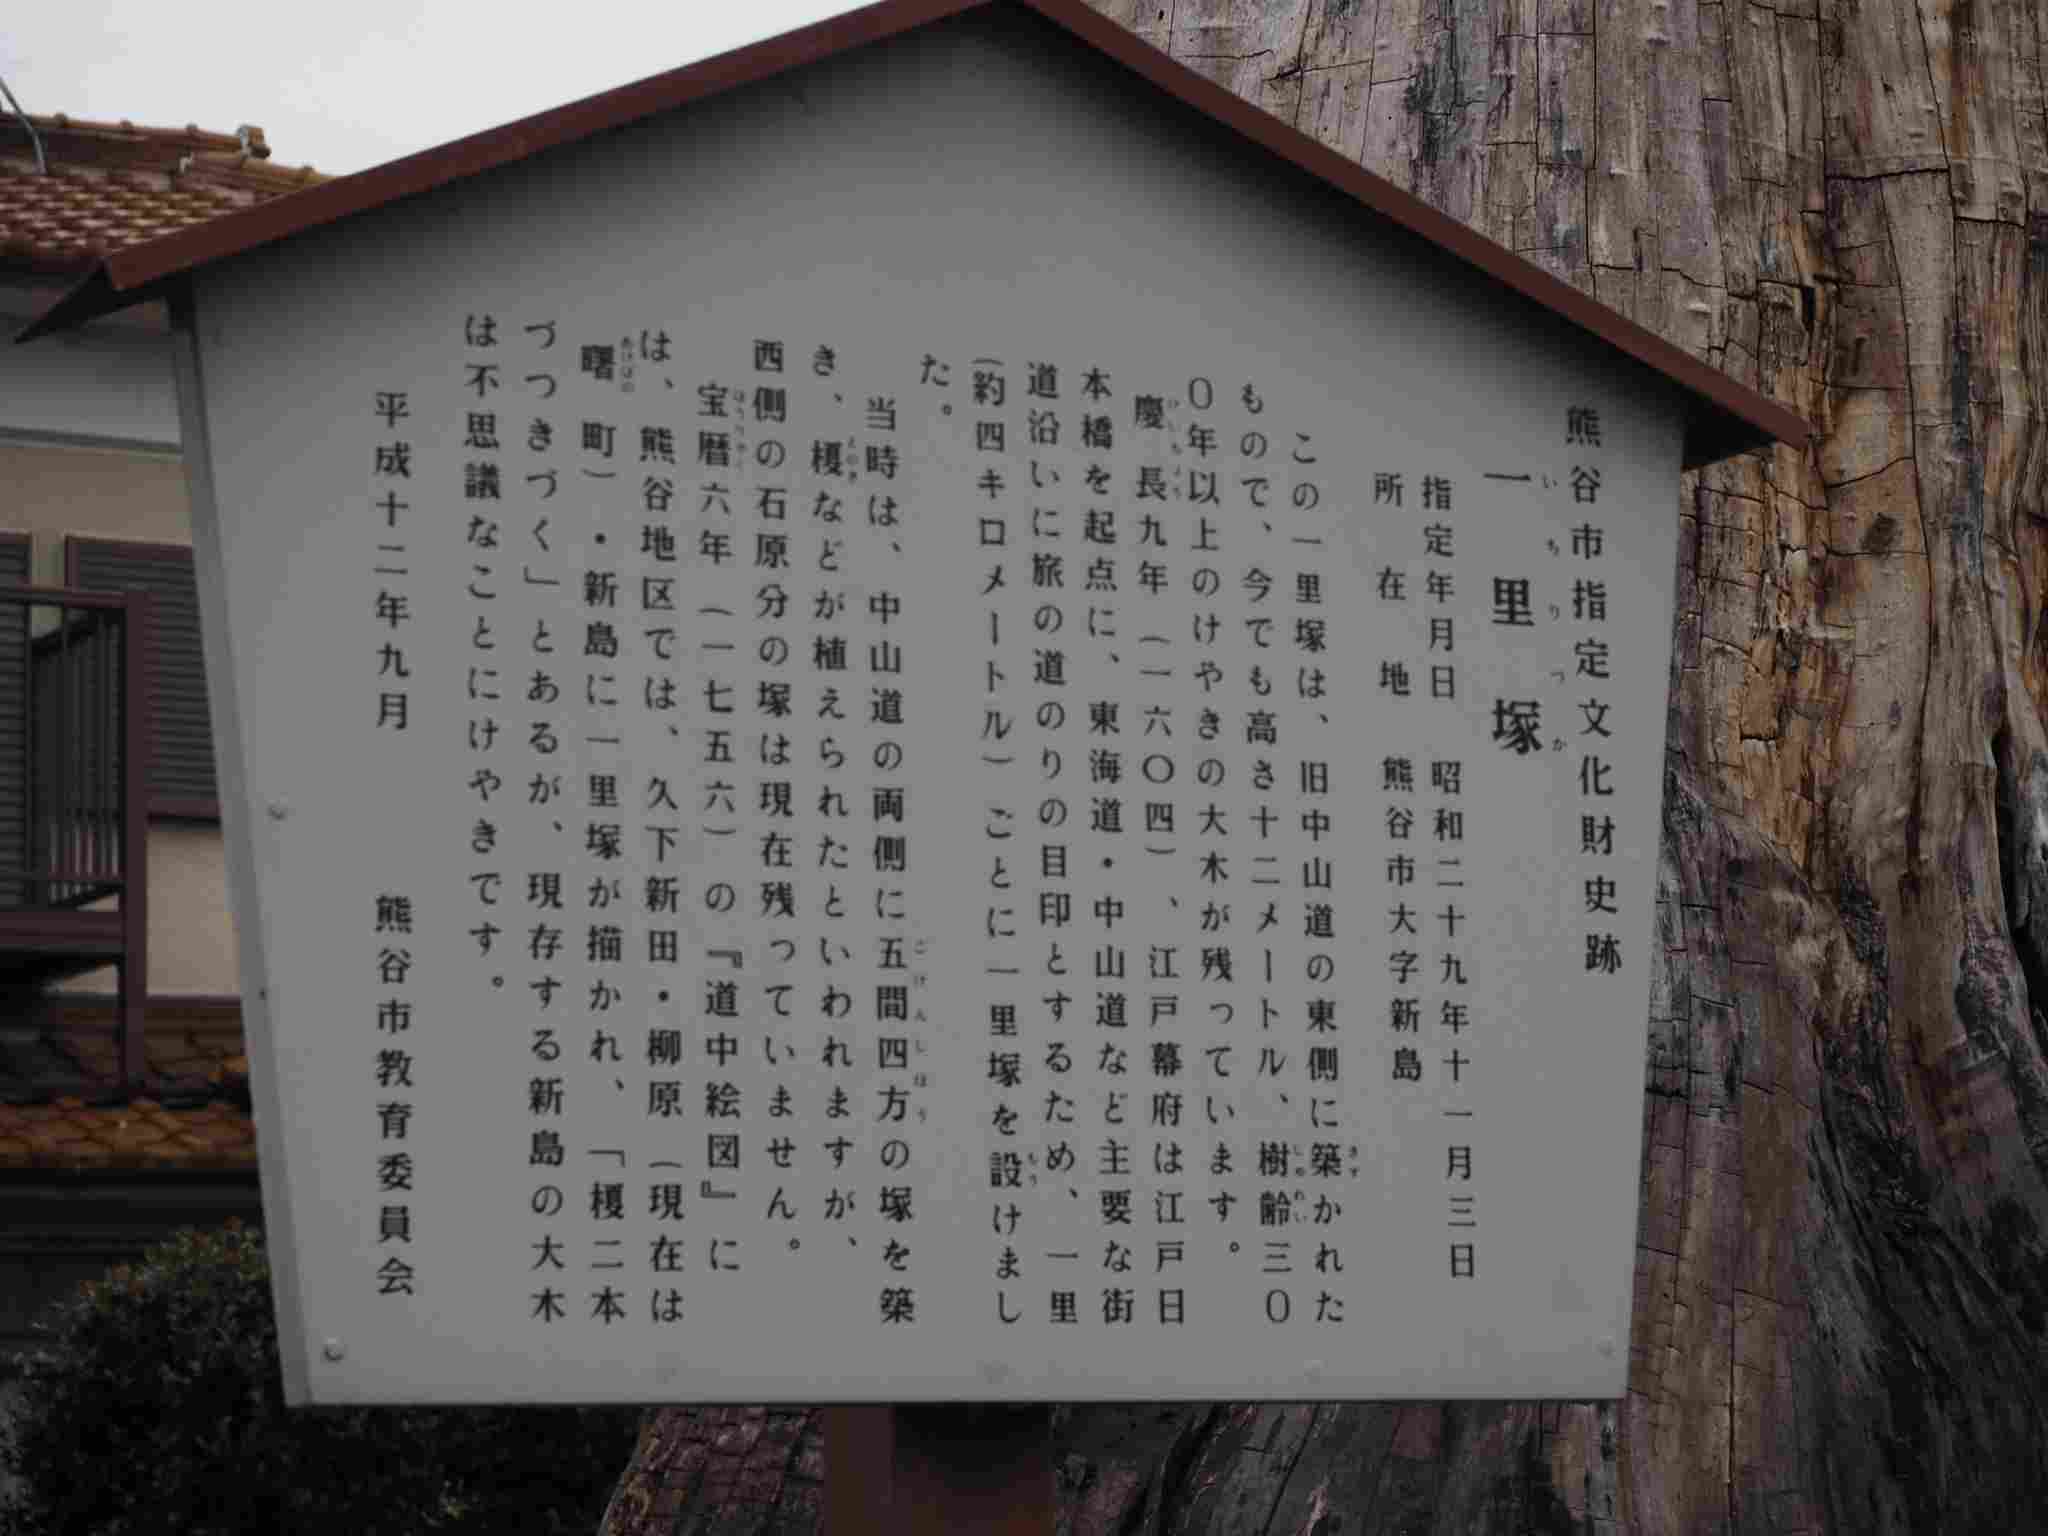 熊谷市指定文化財史跡
一里塚
いちりづか
指定年月日 昭和二十九年十一月三日
所在地 熊谷市大字新島
この一里塚は、旧中山道の東側に築かれた
ものて、今でも高さ十二メートル、樹齢三〇
〇年以上のけやきの大木が残っています。
慶長九年(一六〇四)、江戸幕府は江戸日
本橋を起点に、東海道・中山道など主要な街
道沿いに旅の道のりの目印とするため、一里
(約四キロメートル)ごとに一里塚を設けまし
た。
当時は、中山道の両側に五間四方の塚を築
き、榎などが植えられたといわれますが、
西側の石原分の塚は現在残っていません。
宝暦六年(一七五六)の『道中絵図』に
は、熊谷地区では、久下新田・柳原(現在は
曙町)・新島に一里塚が描かれ、「榎二本
づつきづく」とあるが、現存する新島の大木
は不思議なことにけやきです。
平成十二年九月 熊谷市教育委員会